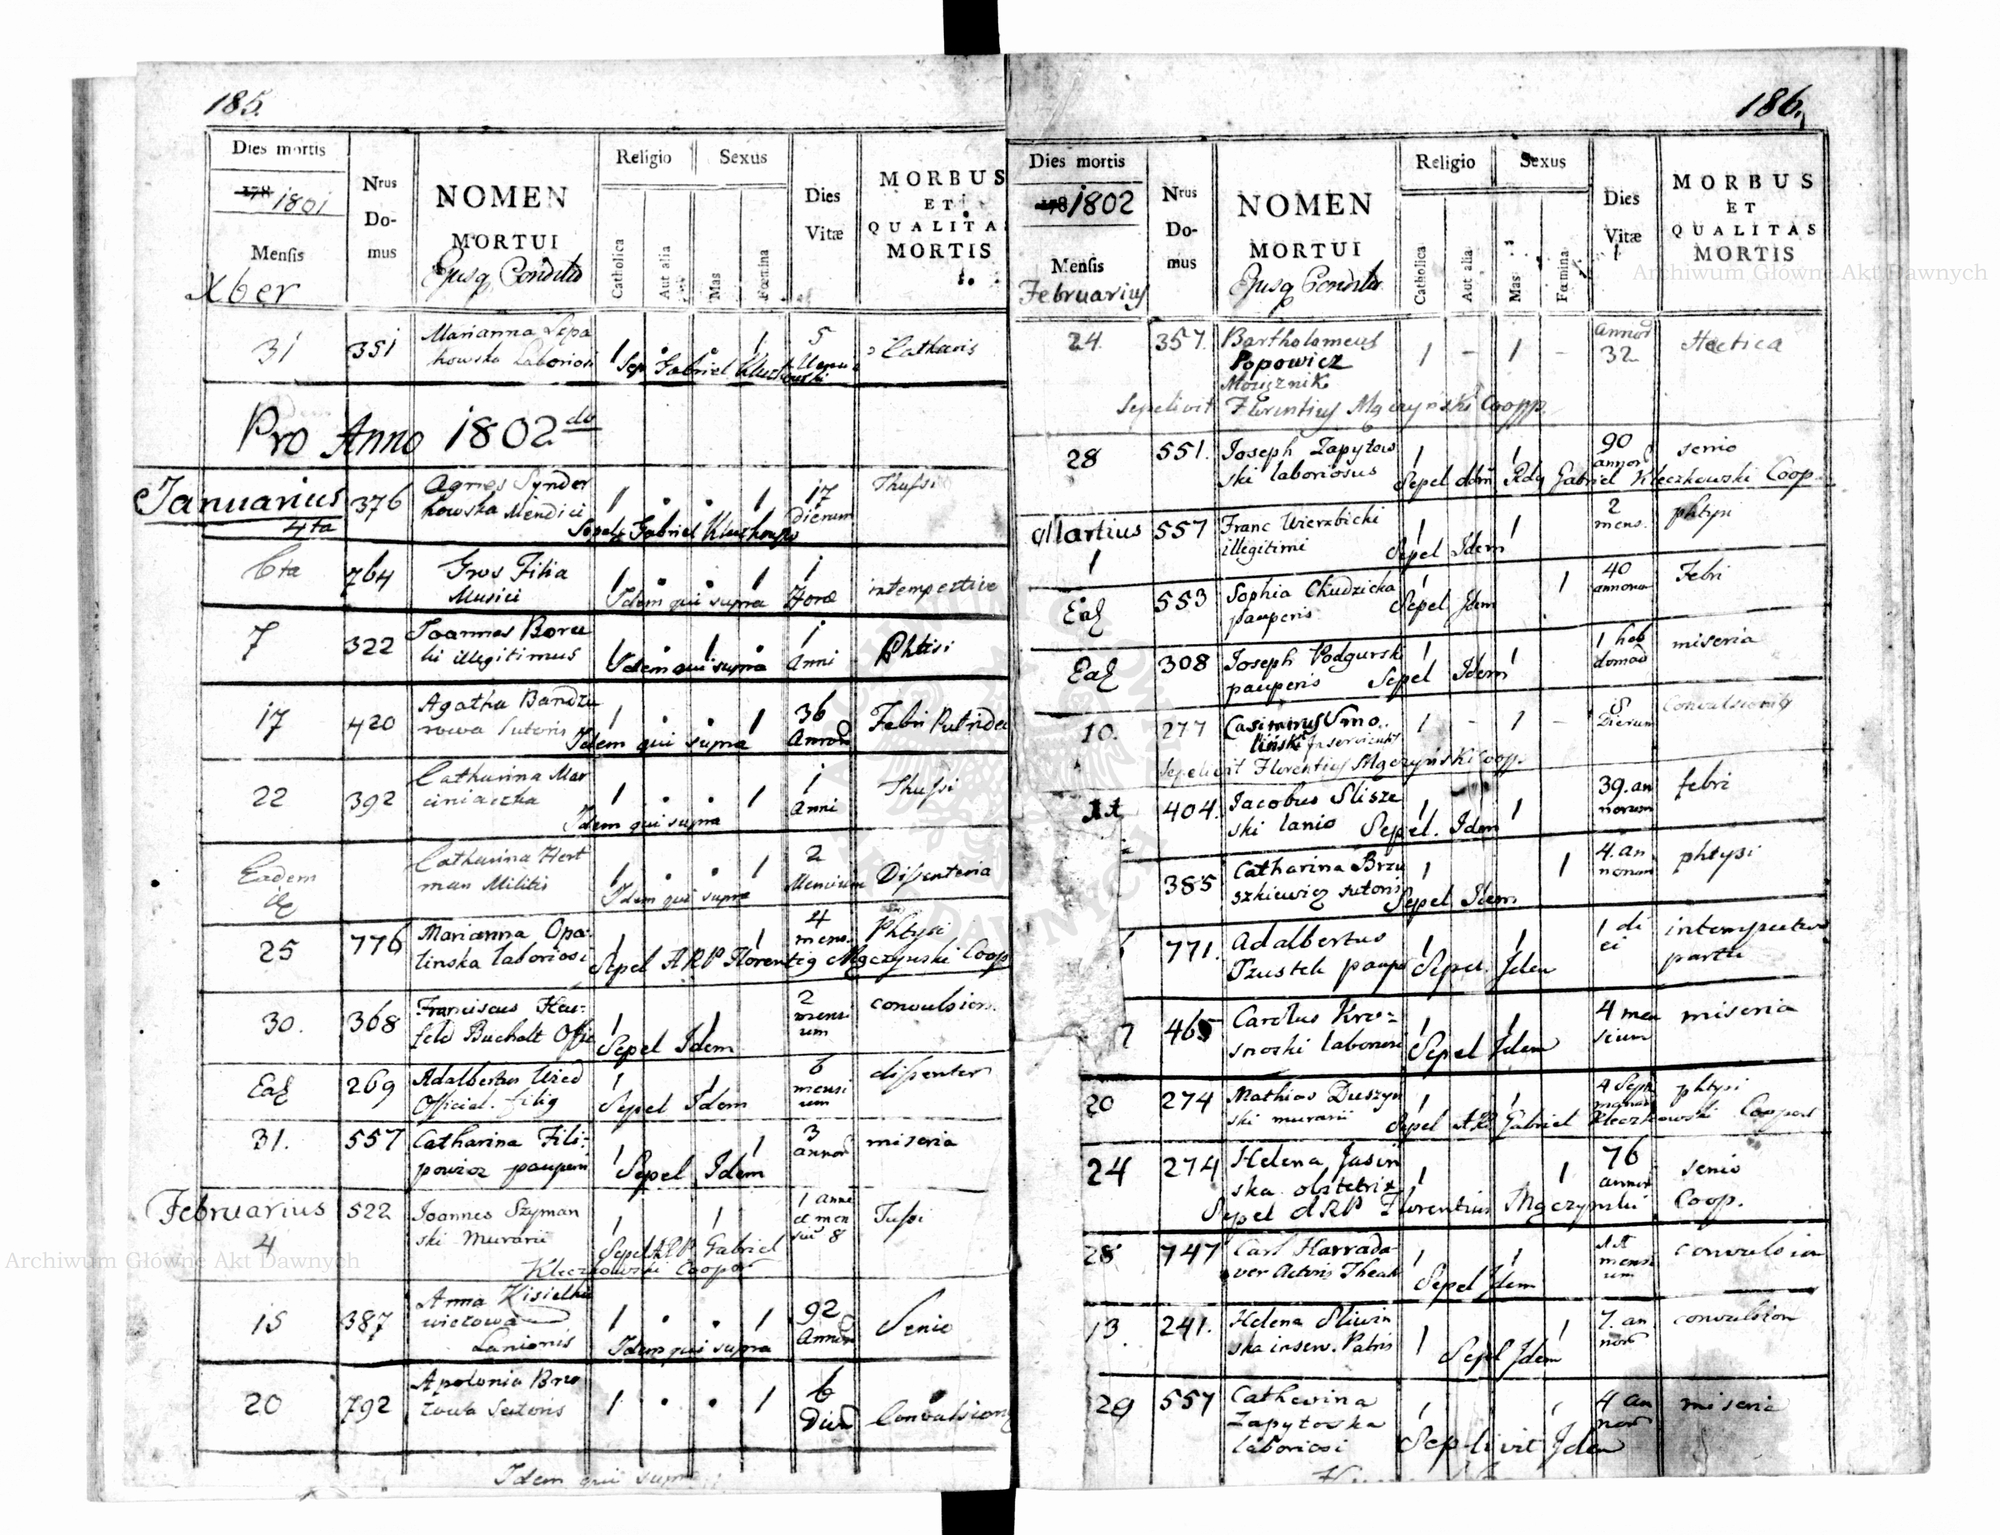 185.
Dies mortis
178 1801
Mensis
Xber
Nrus
Do-
mus
NOMEN
MORTUI
Ejusq Conditio
Religio
Sexus
Catholica
Aut alia
Mas
Fœmina
Dies
Vitæ
MORBUS
ET
QUALITA
MORTIS
31 351 Marianna Lepa
kowska Laboriosi
1 1 5
Sep Gabriel
Catharis
Pro Anno 1802do
Januarius
4ta
376
Agnes Synder
kowska Mendici
1 1 17
dierum
Thussi
Sepel Gabriel
6ta 764 Gros Filia
Musici
1 1 1
Horæ
intempestive
Idem qui supra
7 322 Joannes Boru
lii illegitimus
1 1 1
Anni
Phtisi
Idem qui supra
17 420 Agatha Bandzu
rowa Sutoris
1 1 36
Annor
Febri Putrida
Idem qui supra
22 392 Catharina Mar
ciniaczka
1 1 1
Anni
Thussi
Idem qui supra
Eadem
Catharina Hert
man Militis
1 1 2
Mensium
Dissenteria
Idem qui supra
25 776 Marianna Opa-
linska laboriosi
1 1 4
mens.
Phtysi
Sepel ARP Florentig Mączynski Coop
30. 368 Franciscus Heu-
feld Bucholt Offic
1 1 2
mensi
um
convulsion.
Sepel Idem
Ead 269 Adalbertus Ured
Official. filig
1 1 6
mensi
um
dissenter
Sepel Idem
31. 557 Catharina Fili-
powicz pauperi
1 1 3
annor
miseria
Sepel Idem
Februarius
4
522
Joannes Szyman
ski Murarii
1 1 1 anni
et men
sis 8
Tussi
Sepel ARP Gabriel
Kleczkowski Cooper
15 387 Anna Kisielke
wiczowa
Lanionis
1 1 92
Annor
Senio
Idem qui supra
20 792 Apolonia Brzo
zowa Sutoris
1 1 6
Dier
Convulsiong
Idem qui supra
186.
Dies mortis
178 1802
Mensis
Februariy
Nrus
Do-
mus
NOMEN
MORTUI
Ejusq Conditio
Religio
Sexus
Catholica
Aut alia
Mas
Fœmina
Dies
Vitæ
MORBUS
ET
QUALITAS
MORTIS
24 357. Bartholomeus
Popowicz
1 - 1 - Annor
32
Hectica
Sepelivit Florentiy Mączynski Coopp.
28 551. Joseph Zapytow
ski laboriosus
1 1 90
annor
senio
Sepel ddm Rdg Gabriel Kleczkowski Coop
Martius
1
557
Franc Wierzbicki
illegitimi
1 1 2
mens.
phtysi
Sepel Idem
Ead 553 Sophia Chudzicka
pauperis
1 1 40
annorum
Febri
Sepel Idem
Ead 308 Joseph Podgurski
pauperis
1 1 1 heb
domad
miseria
Sepel Idem
10. 277 Casimirus Smo
linski
1 - 1 - 8
Dierum
Convulsioniby
Sepelivit Florentiy Mączynski Coop.
11 404. Jacobus Slisze
ski lanio
1 1 39. an
norum
febri
Sepel. Idem
385 Catharina Brzu
szkiewicz sutoris
1 1 4. an
norum
phtysi
Sepel Idem
771. Adalbertus
Tzustek paupe
1 1 1 di
ei
intempestivo
partu
Sepel. Idem
7 465 Carolus Kro-
snoski laboriosi
1 1 4 men
sium
miseria
Sepel Idem
20 274 Mathias Duszyn
ski murarii
1 1 4 Sept
manar
phtysi
Sepel ARP Gabriel Kleczkowski Cooperat
24 274 Helena Jasin
ska obstetrix
1 1 76
annor
senio
Sepel ARP Florentius Mączynski Coop.
28 747 Carl Harrada
ver Actoris Theatr
1 1 11
mensi
um
convulsion
Sepel Idem
13 241. Helena Sliwin
ska inserv. Patris
1 1 7. an
nor
convulsion
Sepel Idem
29 557 Catherina
Zapytoska
laboriosi
1 1 4 an
nor
miseria
Seplivit Idem
Archiwum Główne Akt Dawnych
Archiwum Główne Akt Dawnych